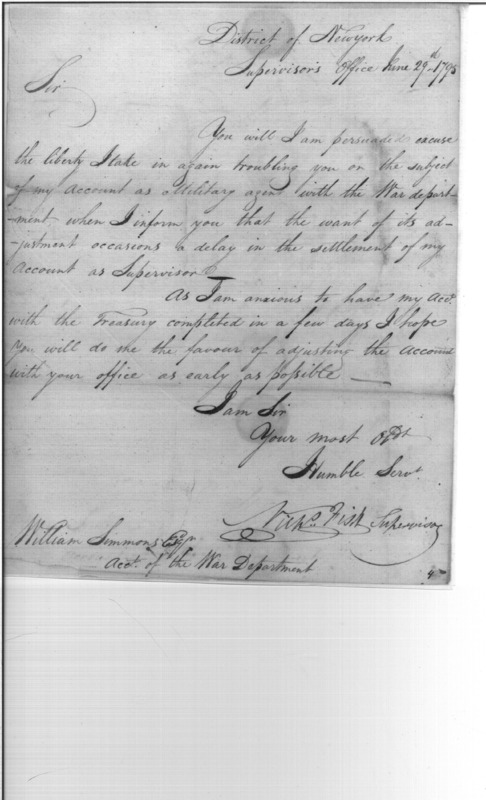 District of Newyork
Supervisor's Office June 29d 1795
Sir
You will I am persuaded excuse
the liberty I take in again troubling you on the subject
of my account as Military agent with the War depart-
-ment when I inform you that the want of its ad-
-justment occasions a delay in the settlement of my
Account as Supervisor
As I am anxious to have my Acct.
with the Treasury completed in a few days I hope
You will do me the favour of adjusting the Account
with your office as early as possible —
I am Sir
Your most Obdt
Humble Servt.
Nichs. Fish Supervisor
William Simmons Esqr
Acct. of the War Department